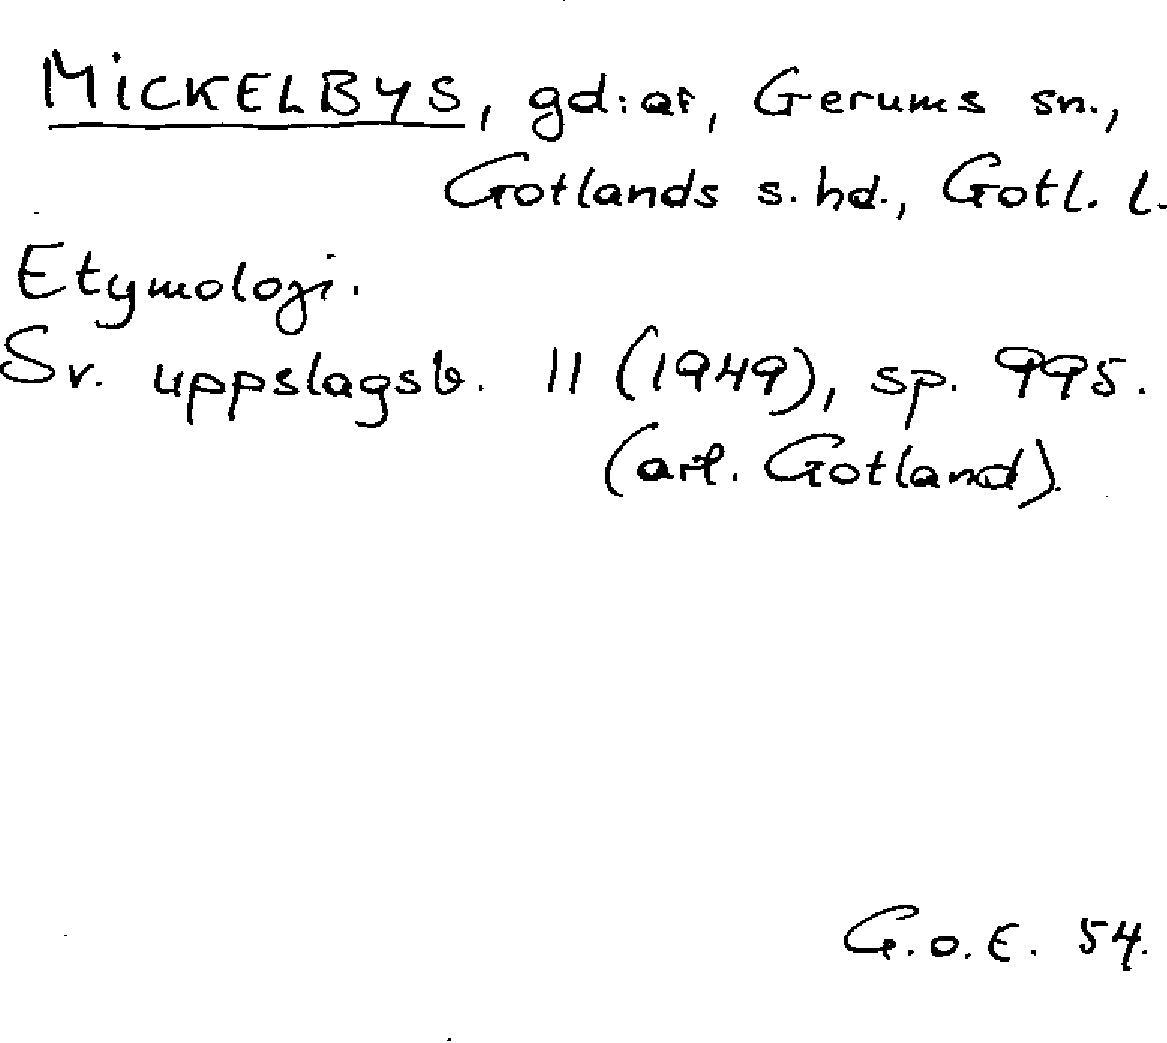 MICKELBYS, gd:ar, Gerums sn.,
Gotlands s. hd., Gotl. l.
Etymologi.
Sv. uppslagsb. 11 (1949), sp. 995.
(art. Gotland).
G.O.E. 54.